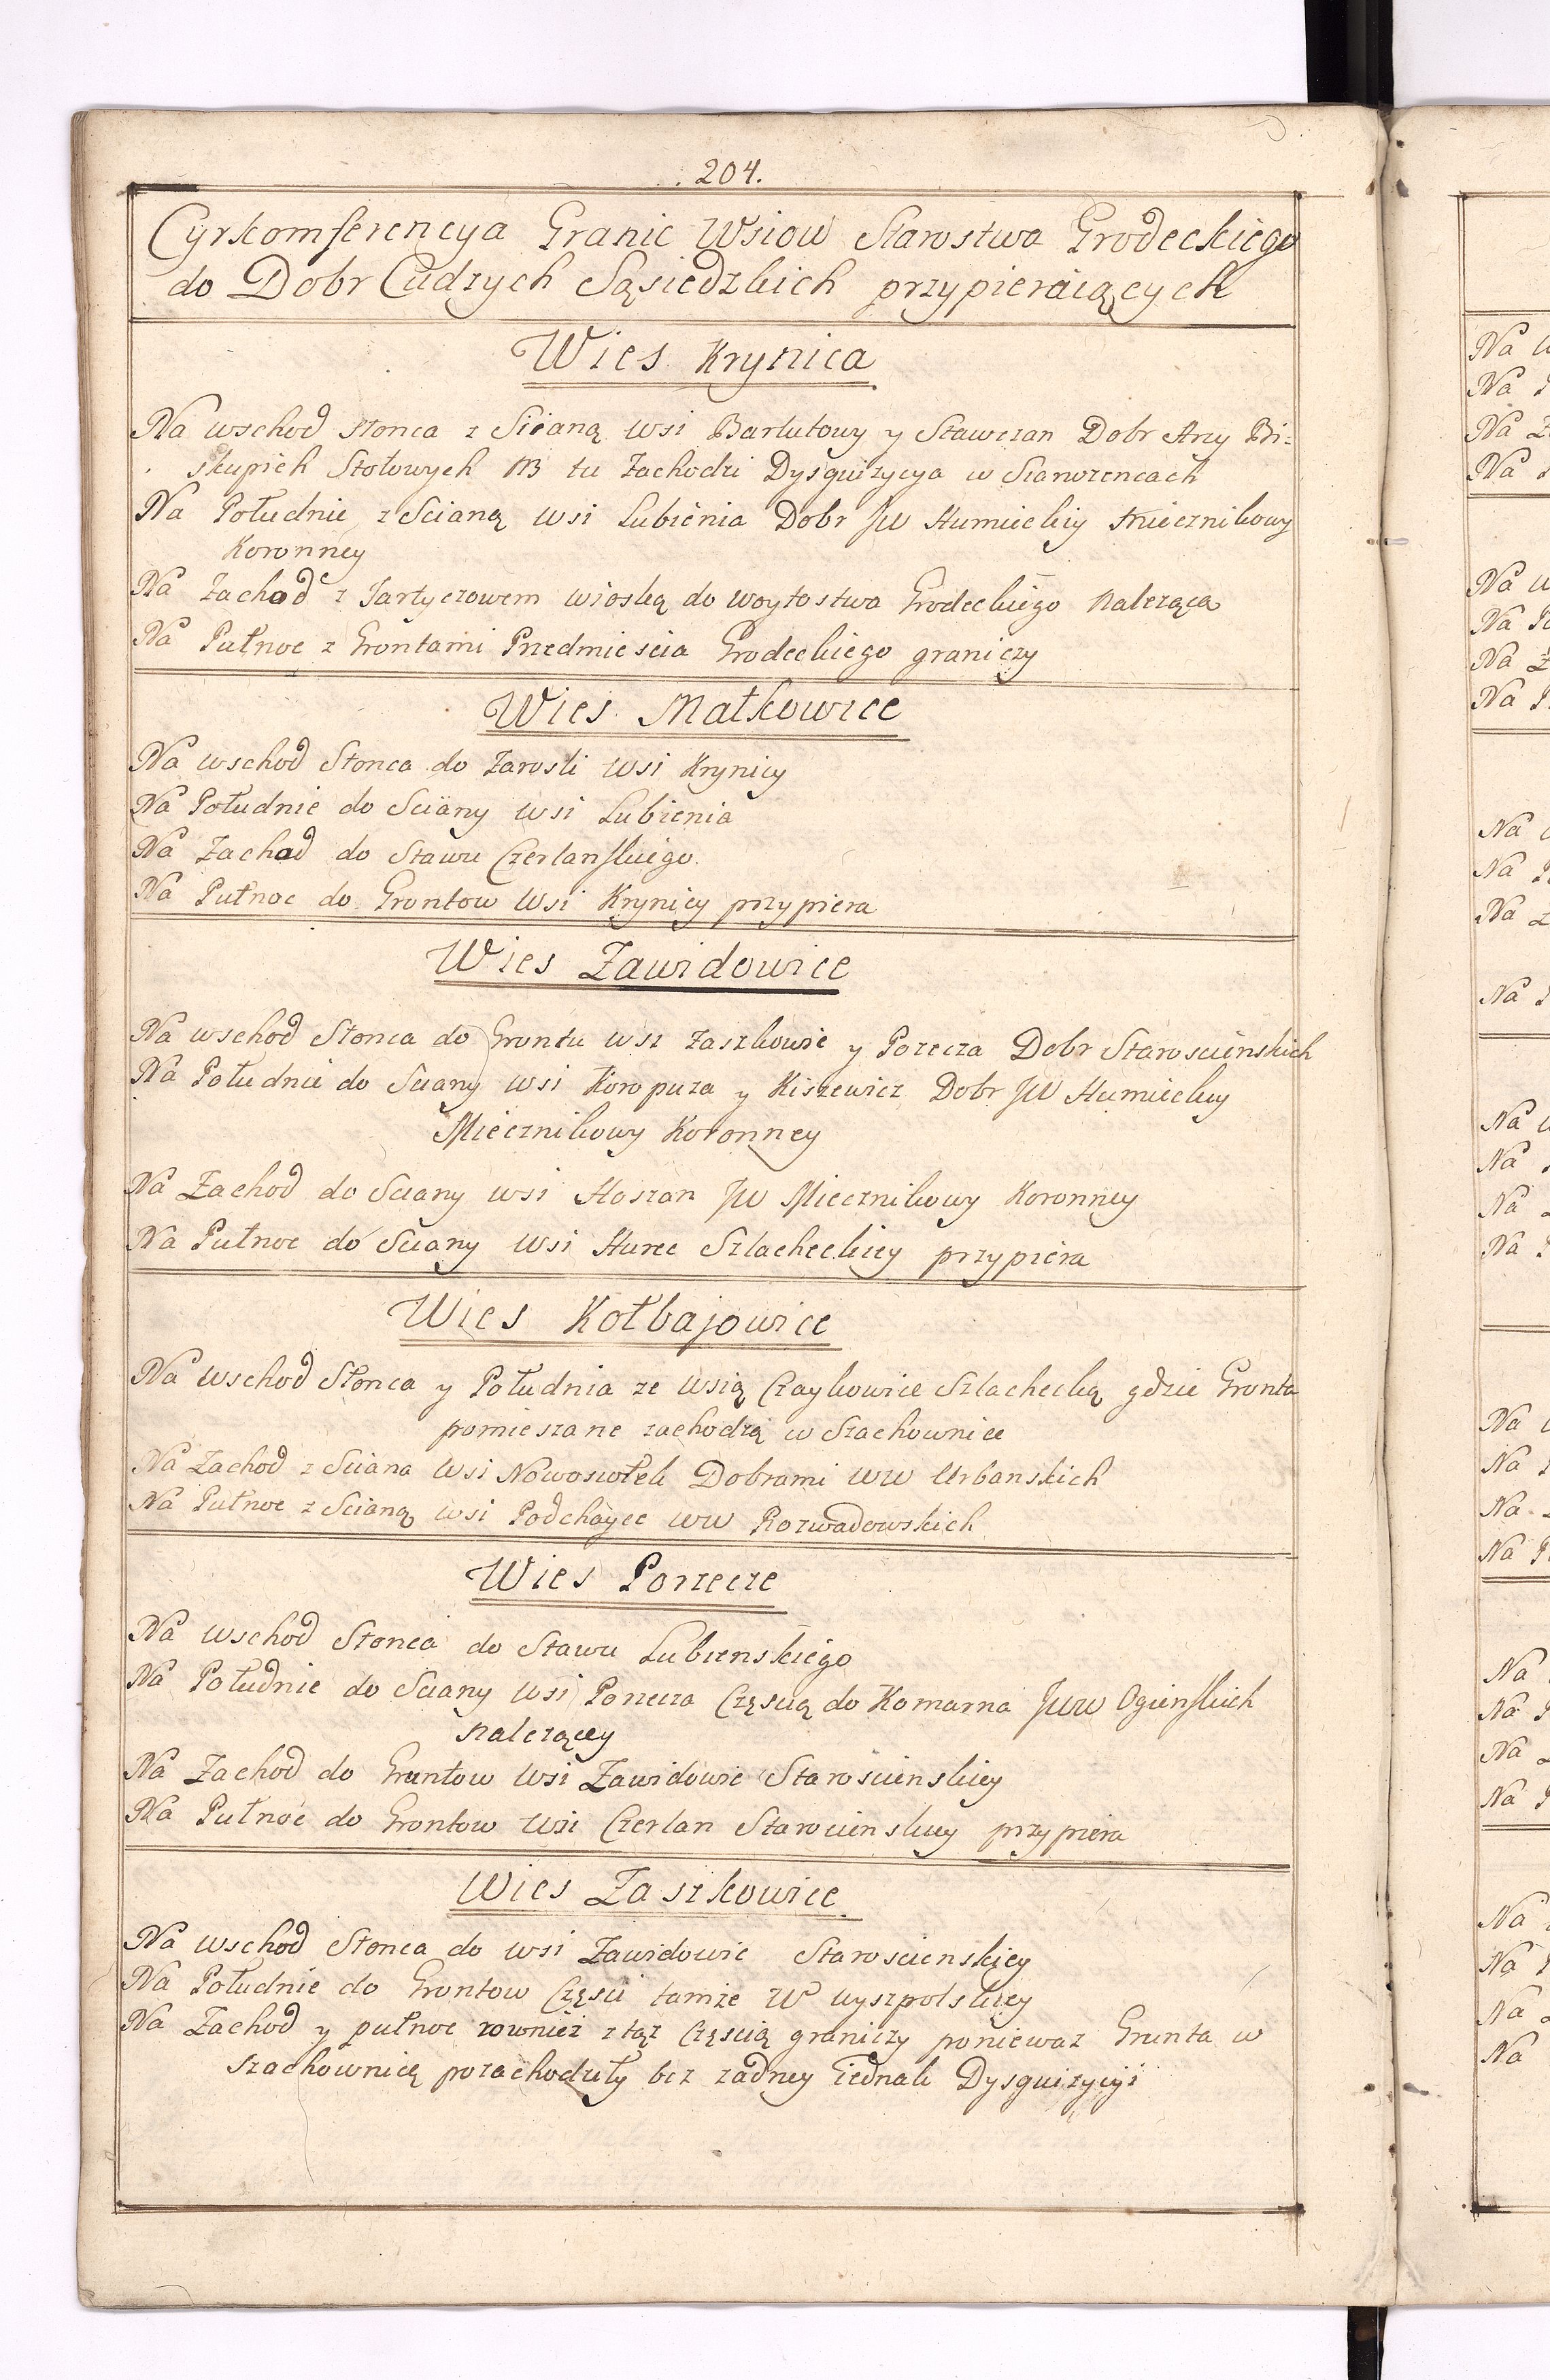 204.
Cyrkomferencya Granic Wsiow Starostwa Grodeckiego
do Dobr Cudzych Sąsiedzkich przypieraiących
Wies Krynica
Na wschod słonca z Scianą wsi Bartutowy y Stawczan Dobr Arcy Bi-
skupich Stołowych NB tu zachodzi Dysguizycya w Stanozencach
Na Południe z Scianą wsi Lubienia Dobr JW Humieckiy Miecznikowy
Koronney
Na Zachod z Jartyczowem wioską do woytostwa Grodeckiego należącą
Na Pułnoc z Grontami Przedmiescia Grodeckiego graniczy
Wies Małkowice
Na wschod Słonca do Zarosli wsi Krynicy
Na Południe do Sciany wsi Lubienia
Na Zachod do Stawu Czerlanskiego
Na Pułnoc do Grontow wsi Krynicy przypiera
Wies Zawidowice
Na wschod Słonca do Grontu wsi Zaszkowic y Porzecza Dobr Starościnskich
Na Południe do Sciany wsi Koropuza y Kiszewicz Dobr JW Humieckiy
Miecznikowy Koronney
Na Zachod do Sciany wsi Hoszan JW Miecznikowy Koronney
Na Pułnoc do Sciany wsi Hurec Szlacheckiey przypiera
Wies Kołbajowice
Na wschod Słonca y Południa ze wsią Czaykowice Szlachecką gdzie Gronta
pomieszane zachodzą w Szachownice
Na Zachod z Sciana wsi Nowosiołek Dobrami WW Urbanskich
Na Pułnoc z Scianą wsi Podchayec WW Rozwadowskich
Wies Porzecze
Na wschod Słonca do Stawu Lubienskiego
Na Południe do Sciany wsi Porzecza Częscią do Komarna JWW Oginskich
należącey
Na Zachod do Gruntow wsi Zawidowic Staroscienskiey
Na Pułnoc do Grontow wsi Czerlan Staroscienskiey przypiera
Wies Zaszkowice
Na wschod Słonca do wsi Zawidowic Staroscienskiey
Na Południe do Grontow Częsci tamże W Wyszpolskiey
Na Zachod y pułnoc rownież z tąż Częscią graniczy poniewaz Grunta w
szachownicę pozachodziły bez zadney iednak Dysguizycyi
Na
Na
Na
Na
Na
Na
Na
Na
Na
Na
Na
Na
Na
Na
Na
Na
Na
Na
Na
Na
Na
Na
Na
Na
Na
Na
Na
Na